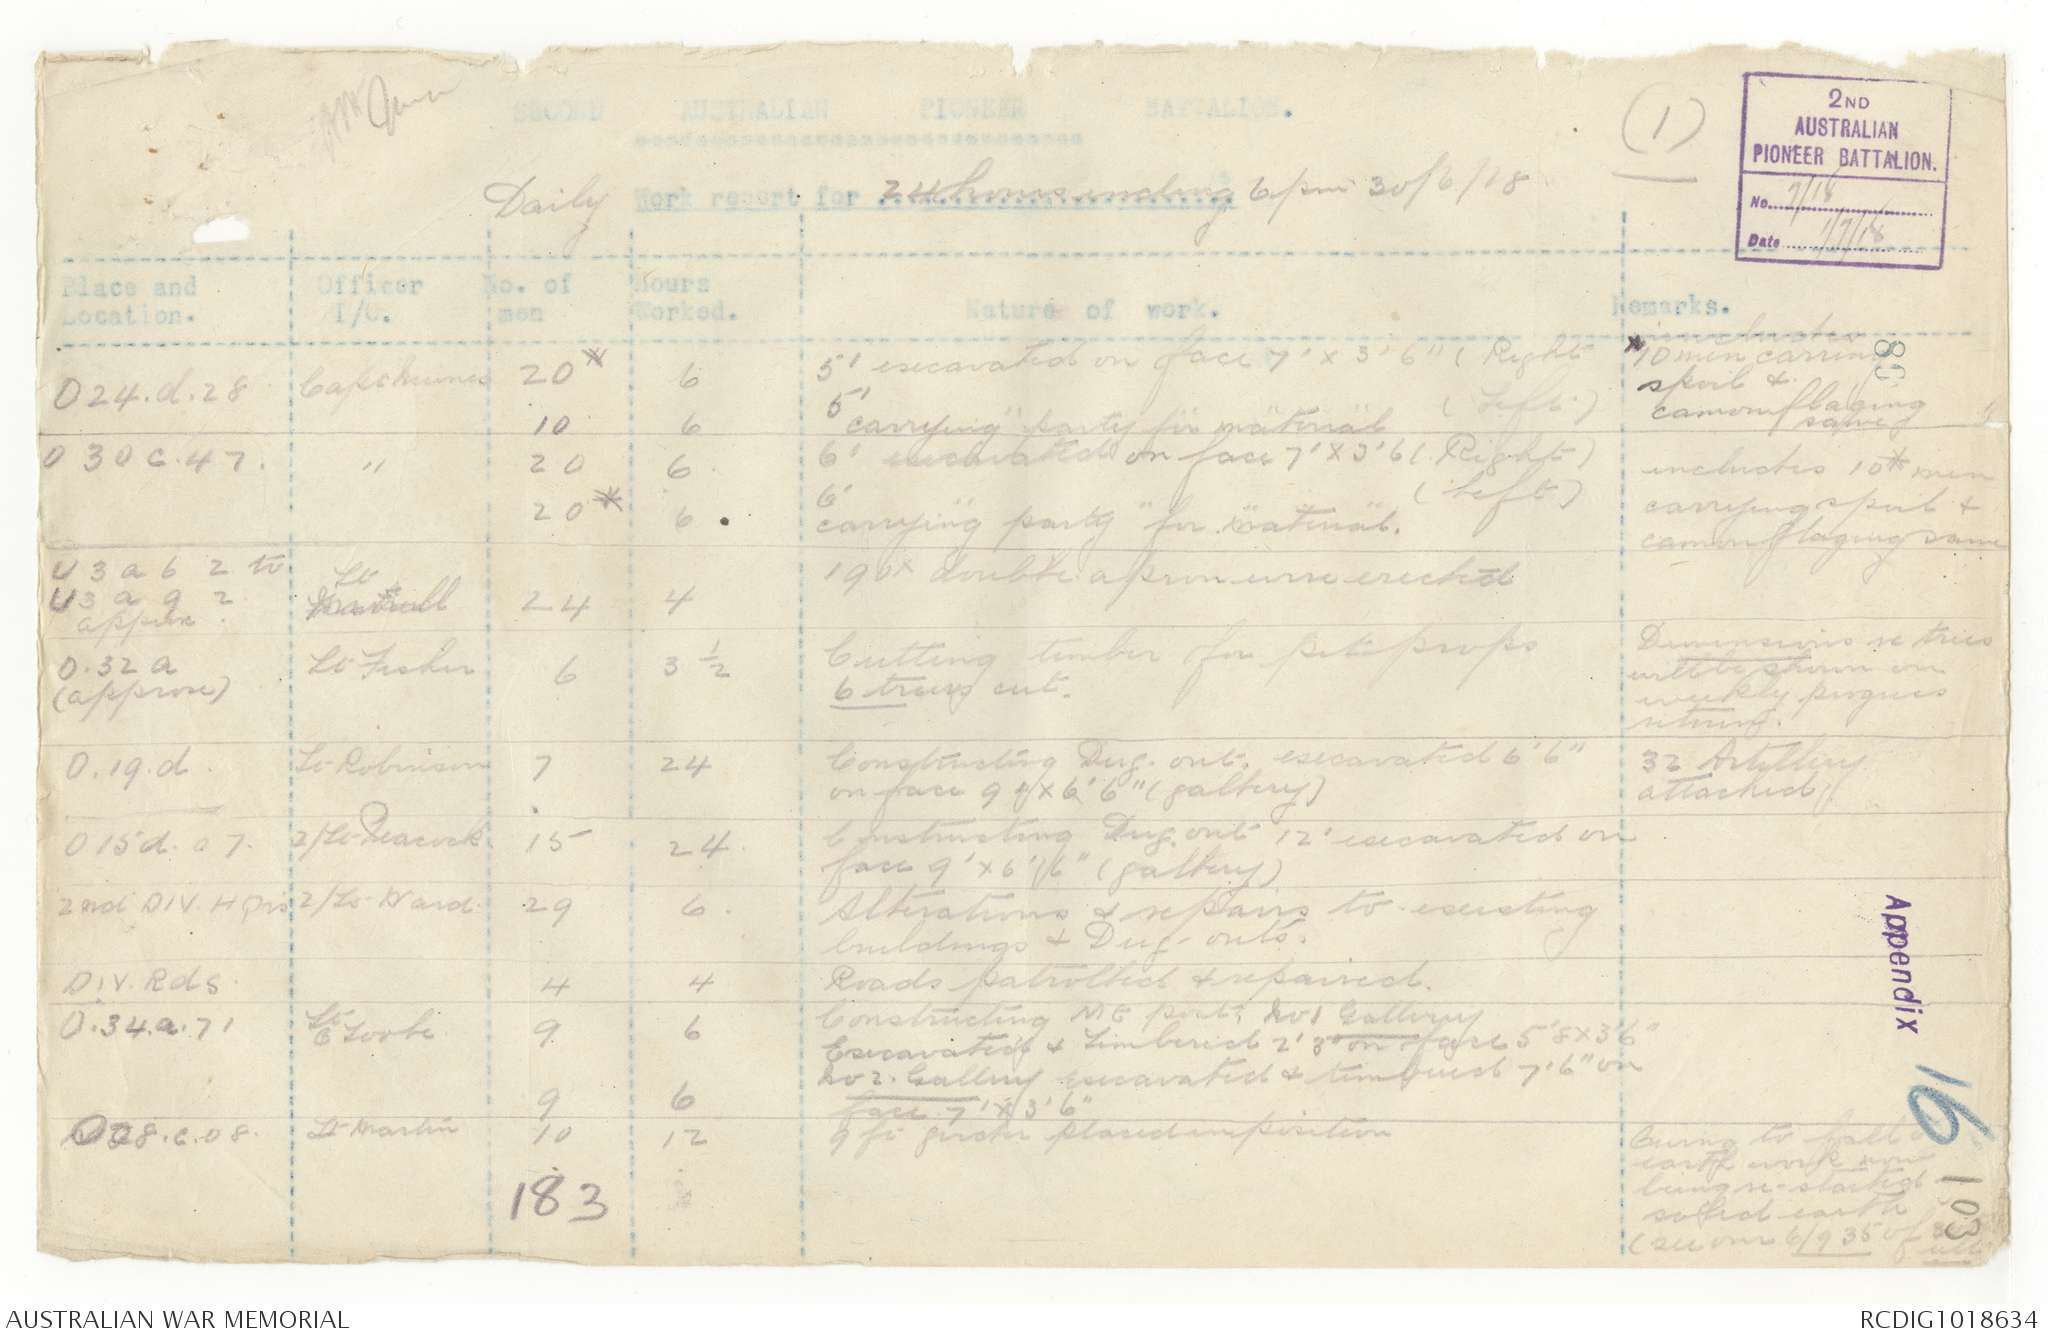 SECOND AUSTRALIAN PIONEER BATTALION.
(1)
2ND
AUSTRALIAN
PIONEER BATTALION.
No. 7/18
Date 1/7/18
Daily Work report for 24 hours ending 6 pm 30/6/18
Place and Location.
Officer I/C.
No. of men
Hours Worked.
Nature of work.
Remarks.
O24.d.28 20* 6 5' excavated on face 7' x 3'6" (Right
5' " " " (Left)
10 6 carrying party for material
* includes
10 men carrying
spoil &
camouflaging
same
O 30c.47. " 20 6 6' excavated on face 7' x 3'6 (Right)
6' " " " (Left)
20* 6 carrying party for material.
includes 10* men
carrying spoil &
camouflaging same
U 3 a 6 2 to
U 3 a 9 2
approx. Lt 24 4 190x double apron wire erected
O.32a
(approx) Lt Fisher 6 3 1/2 Cutting timber for pit props
6 trees cut.
Dimensions re trees
will be shown on
weekly progress
return.
O.19.d. Lt Robinson 7 24 Constructing Dug-out. excavated 6'6"
on face 9' x 6'6" (gallery)
32 Artillery
attached
O15d.07. 2/Lt Peacock 15 24. Constructing Dug.out 12' excavated on
face 9' x 6'6" (gallery)
2nd DIV. H Qrs 2/Lt Ward. 29 6. Alterations & repairs to existing
buildings & Dug-outs.
DIV. Rds. 4 4 Roads patrolled & repaired.
O.34.a.71 Lt 9 6 Constructing MG post. No 1 Gallery
Excavated & Timbered 2'3" on face 5'8 x 3'6"
9 6 No 2. Gallery excavated & timbered 7'6" on
face 7' x 3'6"
28.c.08. Lt Martin 10 12 9 ft girder placed in position
Owing to fall
earth work now
being re-started
solid earth
(see our 6/935 of
183
Appendix 16
103
AUSTRALIAN WAR MEMORIAL
RCDIG1018634